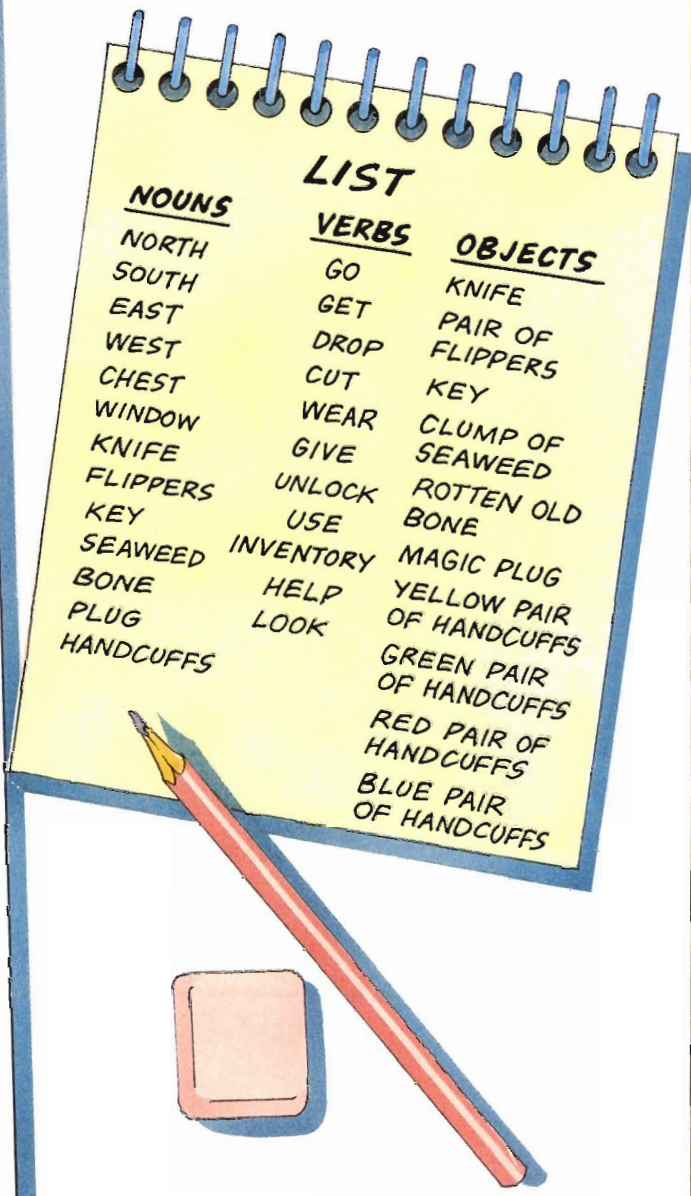 LIST
NOUNS
NORTH
SOUTH
EAST
WEST
CHEST
WINDOW
KNIFE
FLIPPERS
KEY
SEAWEED
BONE
PLUG
HANDCUFFS
VERBS
GO
GET
DROP
CUT
WEAR
GIVE
UNLOCK
USE
INVENTORY
HELP
LOOK
OBJECTS
KNIFE
PAIR OF
FLIPPERS
KEY
CLUMP OF
SEAWEED
ROTTEN OLD
BONE
MAGIC PLUG
YELLOW PAIR
OF HANDCUFFS
GREEN PAIR
OF HANDCUFFS
RED PAIR OF
HANDCUFFS
BLUE PAIR
OF HANDCUFFS